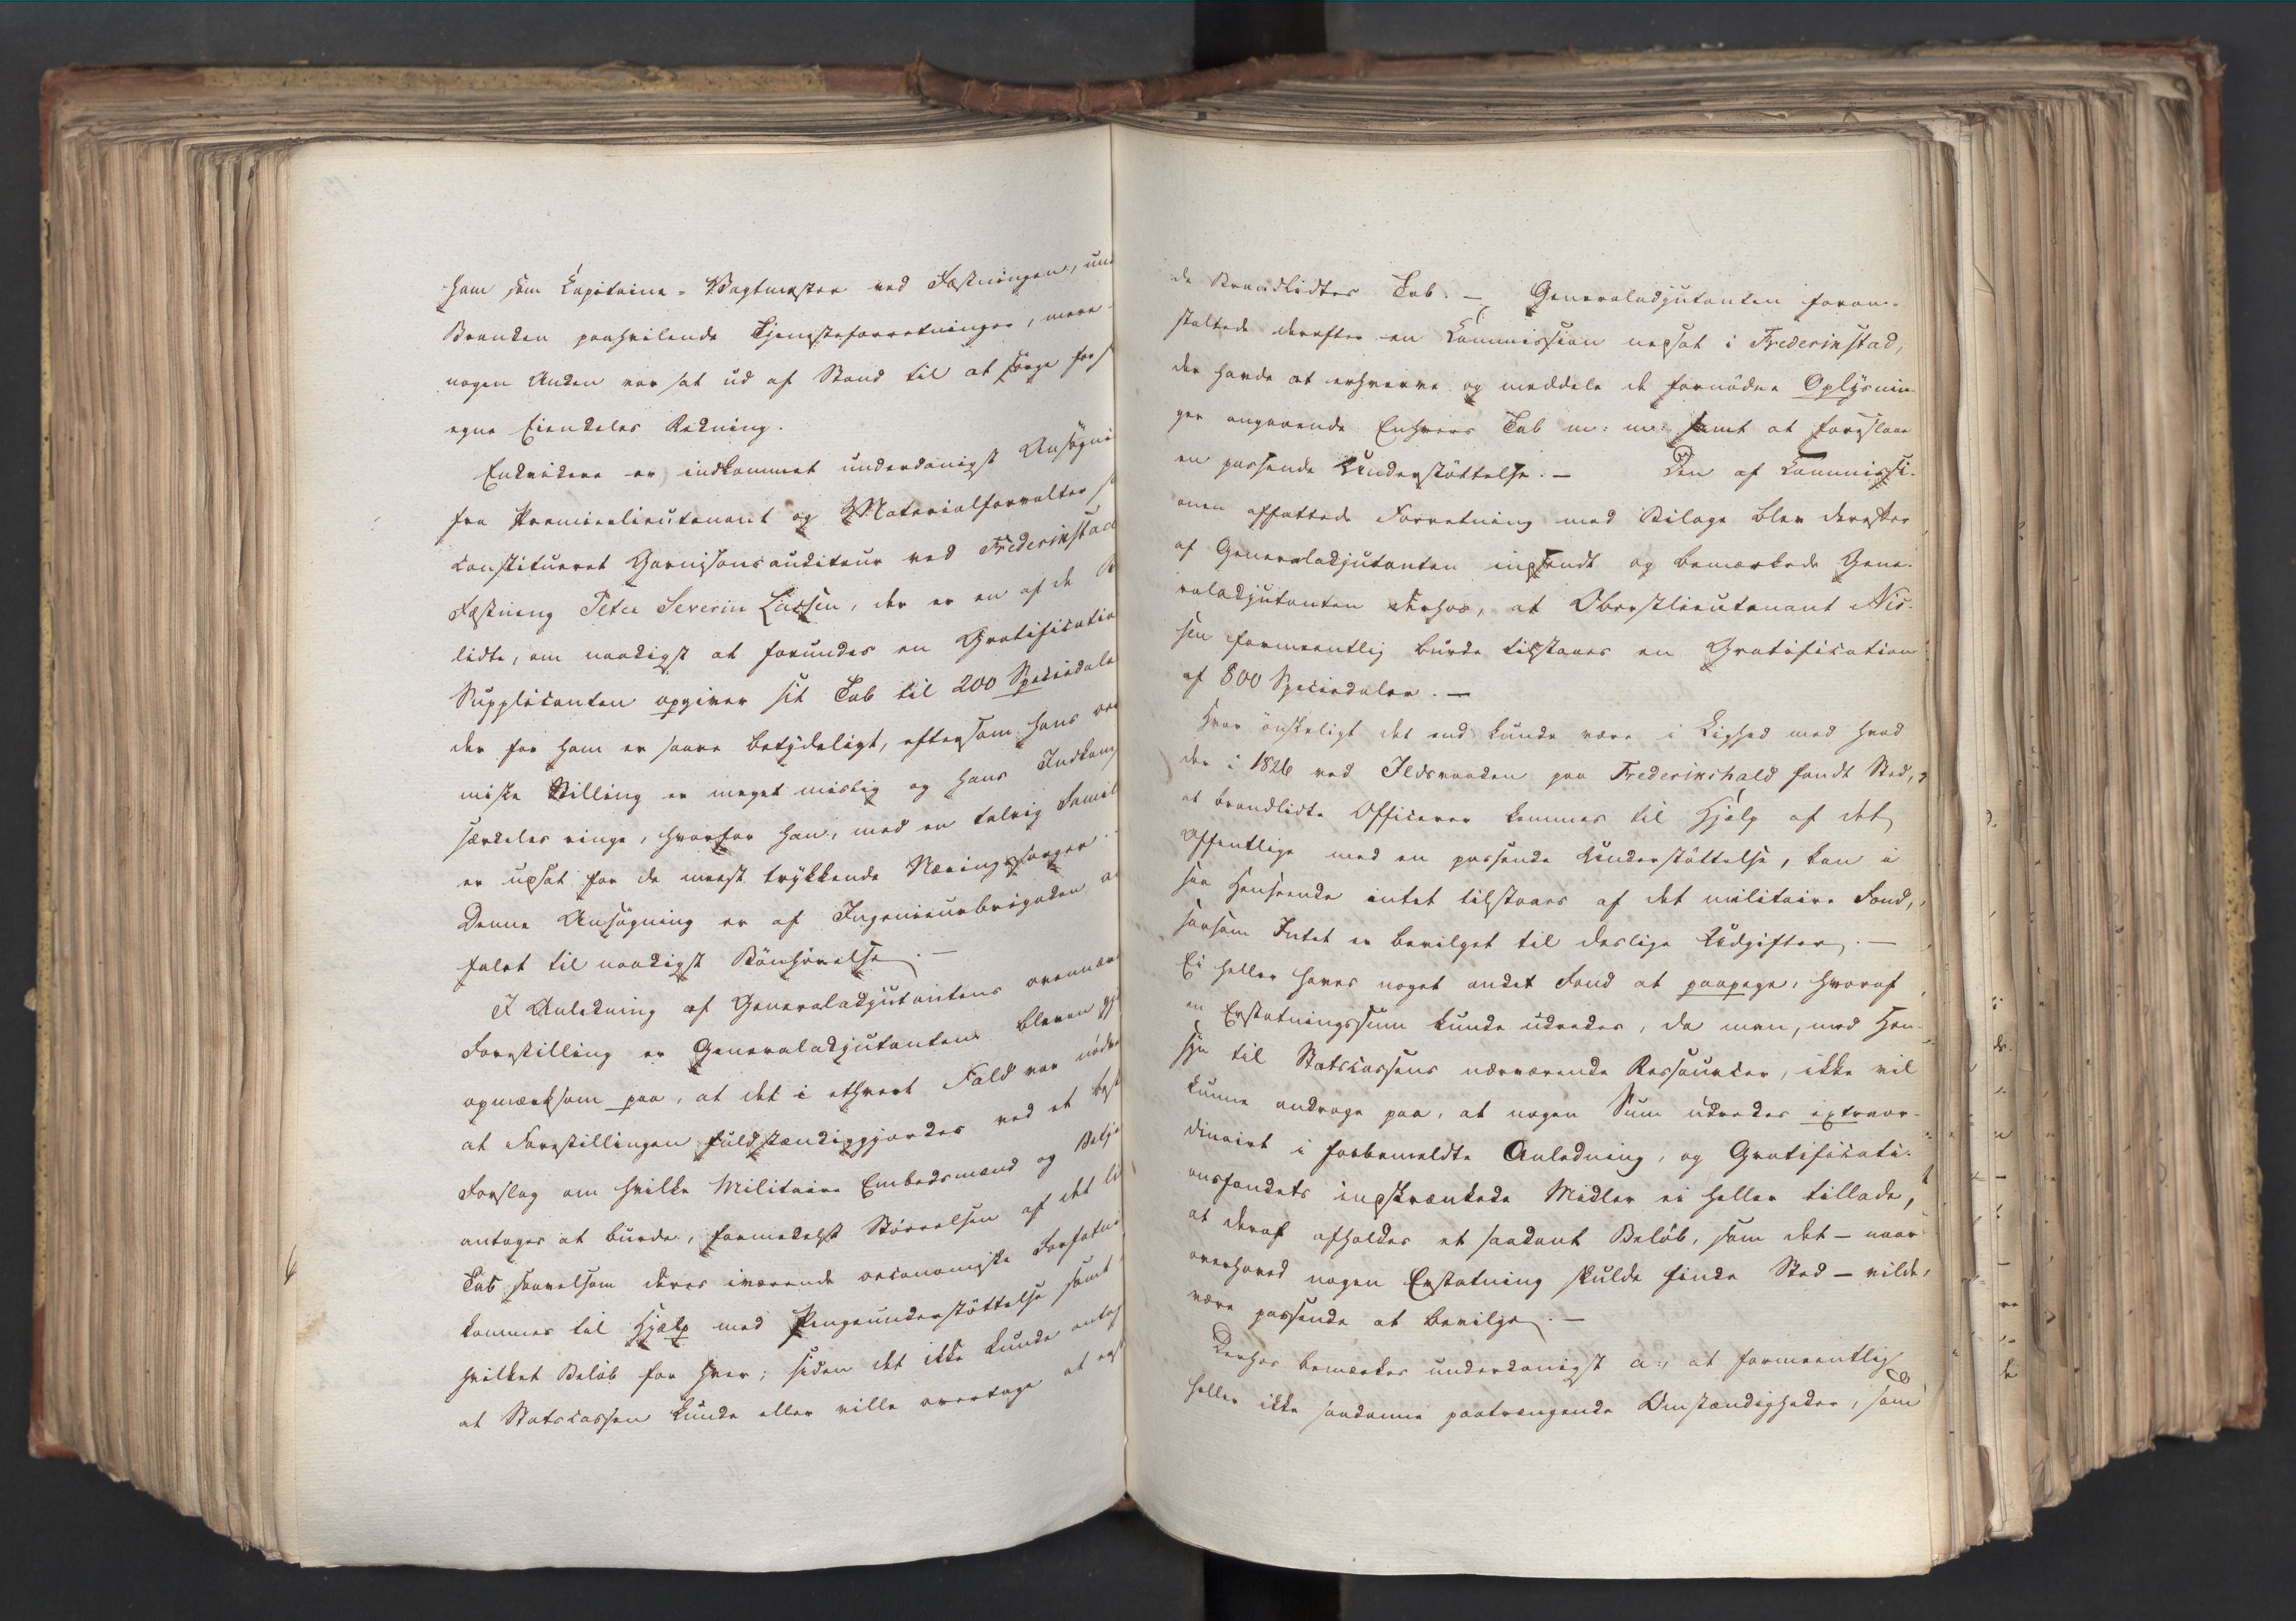 ham som Capitaine-Vagtmester ved Fæstningen, und
Branden paahvilende Tjenesteforretninger, mere
nogen Anden var sat ud af Stand til at sørge for s
egne Eiendeles Redning.
Endvidere er indkommet underdanigst Ansøgni
fra Premierlieutenant og Materialforvalter s
constitueret Garnisonsauditeur ved Frederikstad
Fæstning Peter Severin Lassen, der er en af de B
lidte, om naadigst at forundes en Gratificatio
Supplicanten opgiver sit Tab til 200 Speciedale
der for ham er saare betydeligt, eftersom hans oe
miske Stilling er meget mislig og hans Indkom
særdeles ringe, hvorfor han, med en talrig Famil
er udsat for de meest trykkende Næringssorger.
Denne Ansøgning er af Ingenieurbrigaden a
falet til naadigst Bønhørelse. —
I Anledning af Generaladjutantens ovennæv
Forestilling er Generaladjutanten bleven gj
opmærksom paa, at det i ethvert Fald var nødv
at Forestillingen fuldstændiggjordes ved et best
Forslag om hvilke Militaire Embedsmænd og Betje
antages at burde, formedelst Størrelsen af det li
Tab saavelsom deres iværende oeconomiske Forfatni
kommes til Hjælp med Pengeunderstøttelse samt
hvilket Beløb for hver; siden det ikke kunde antag
at Statscassen kunde eller ville overtage at erst
de Brandlidtes Tab. — Generaladjutanten foran-
staltede derefter en Commission nedsat i Frederikstad,
der havde at erhverve og meddele de fornødne Oplysnin-
ger angaaende Enhvers Tab m: m: samt at foreslaae
en passende Understøttelse. — Den af Commissi-
onen affattede Forretning med Bilage blev derefter
af Generaladjutanten indsendt og bemærkede Gene-
raladjutanten derhos, at Oberstlieutenant Nis-
sen formeentlig burde tilstaaes en Gratification
af 800 Speciedaler. —
Hvor ønskeligt det end kunde være i Lighed med hvad
der i 1826 ved Ildsvaaden paa Frederikshald fandt Sted,
at brandlidte Officerer kommes til Hjælp af det
Offentlige med en passende Understøttelse, kan i
saa Henseende intet tilstaaes af det militaire Fond,
saasom Intet er bevilget til deslige Udgifter. —
Ei heller haves noget andet Fond at paapege, hvoraf
en Erstatningssum kunde udredes, da man, med Hen-
syn til Statscassens nærværende Ressourcer, ikke vil
kunne andrage paa, at nogen Sum udredes extraor-
dinairt i forbemeldte Anledning, og Gratificati-
onsfondets indskrænkede Midler ei heller tillade,
at deraf afholdes et saadant Beløb, som det – naar
overhoved nogen Erstatning skulde finde Sted – vilde
være passende at bevilge. —
Derhos bemærkes underdanigst a:, at formeentlig
heller ikke saadanne paatrængende Omstændigheder, som